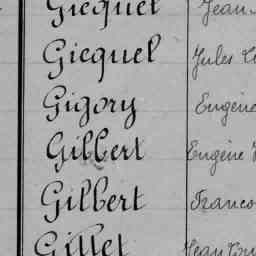 Gicquel Jean
Gicquel Jules
Gigory Eugène
Gilbert Eugène
Gilbert Franco
Gillet Jean